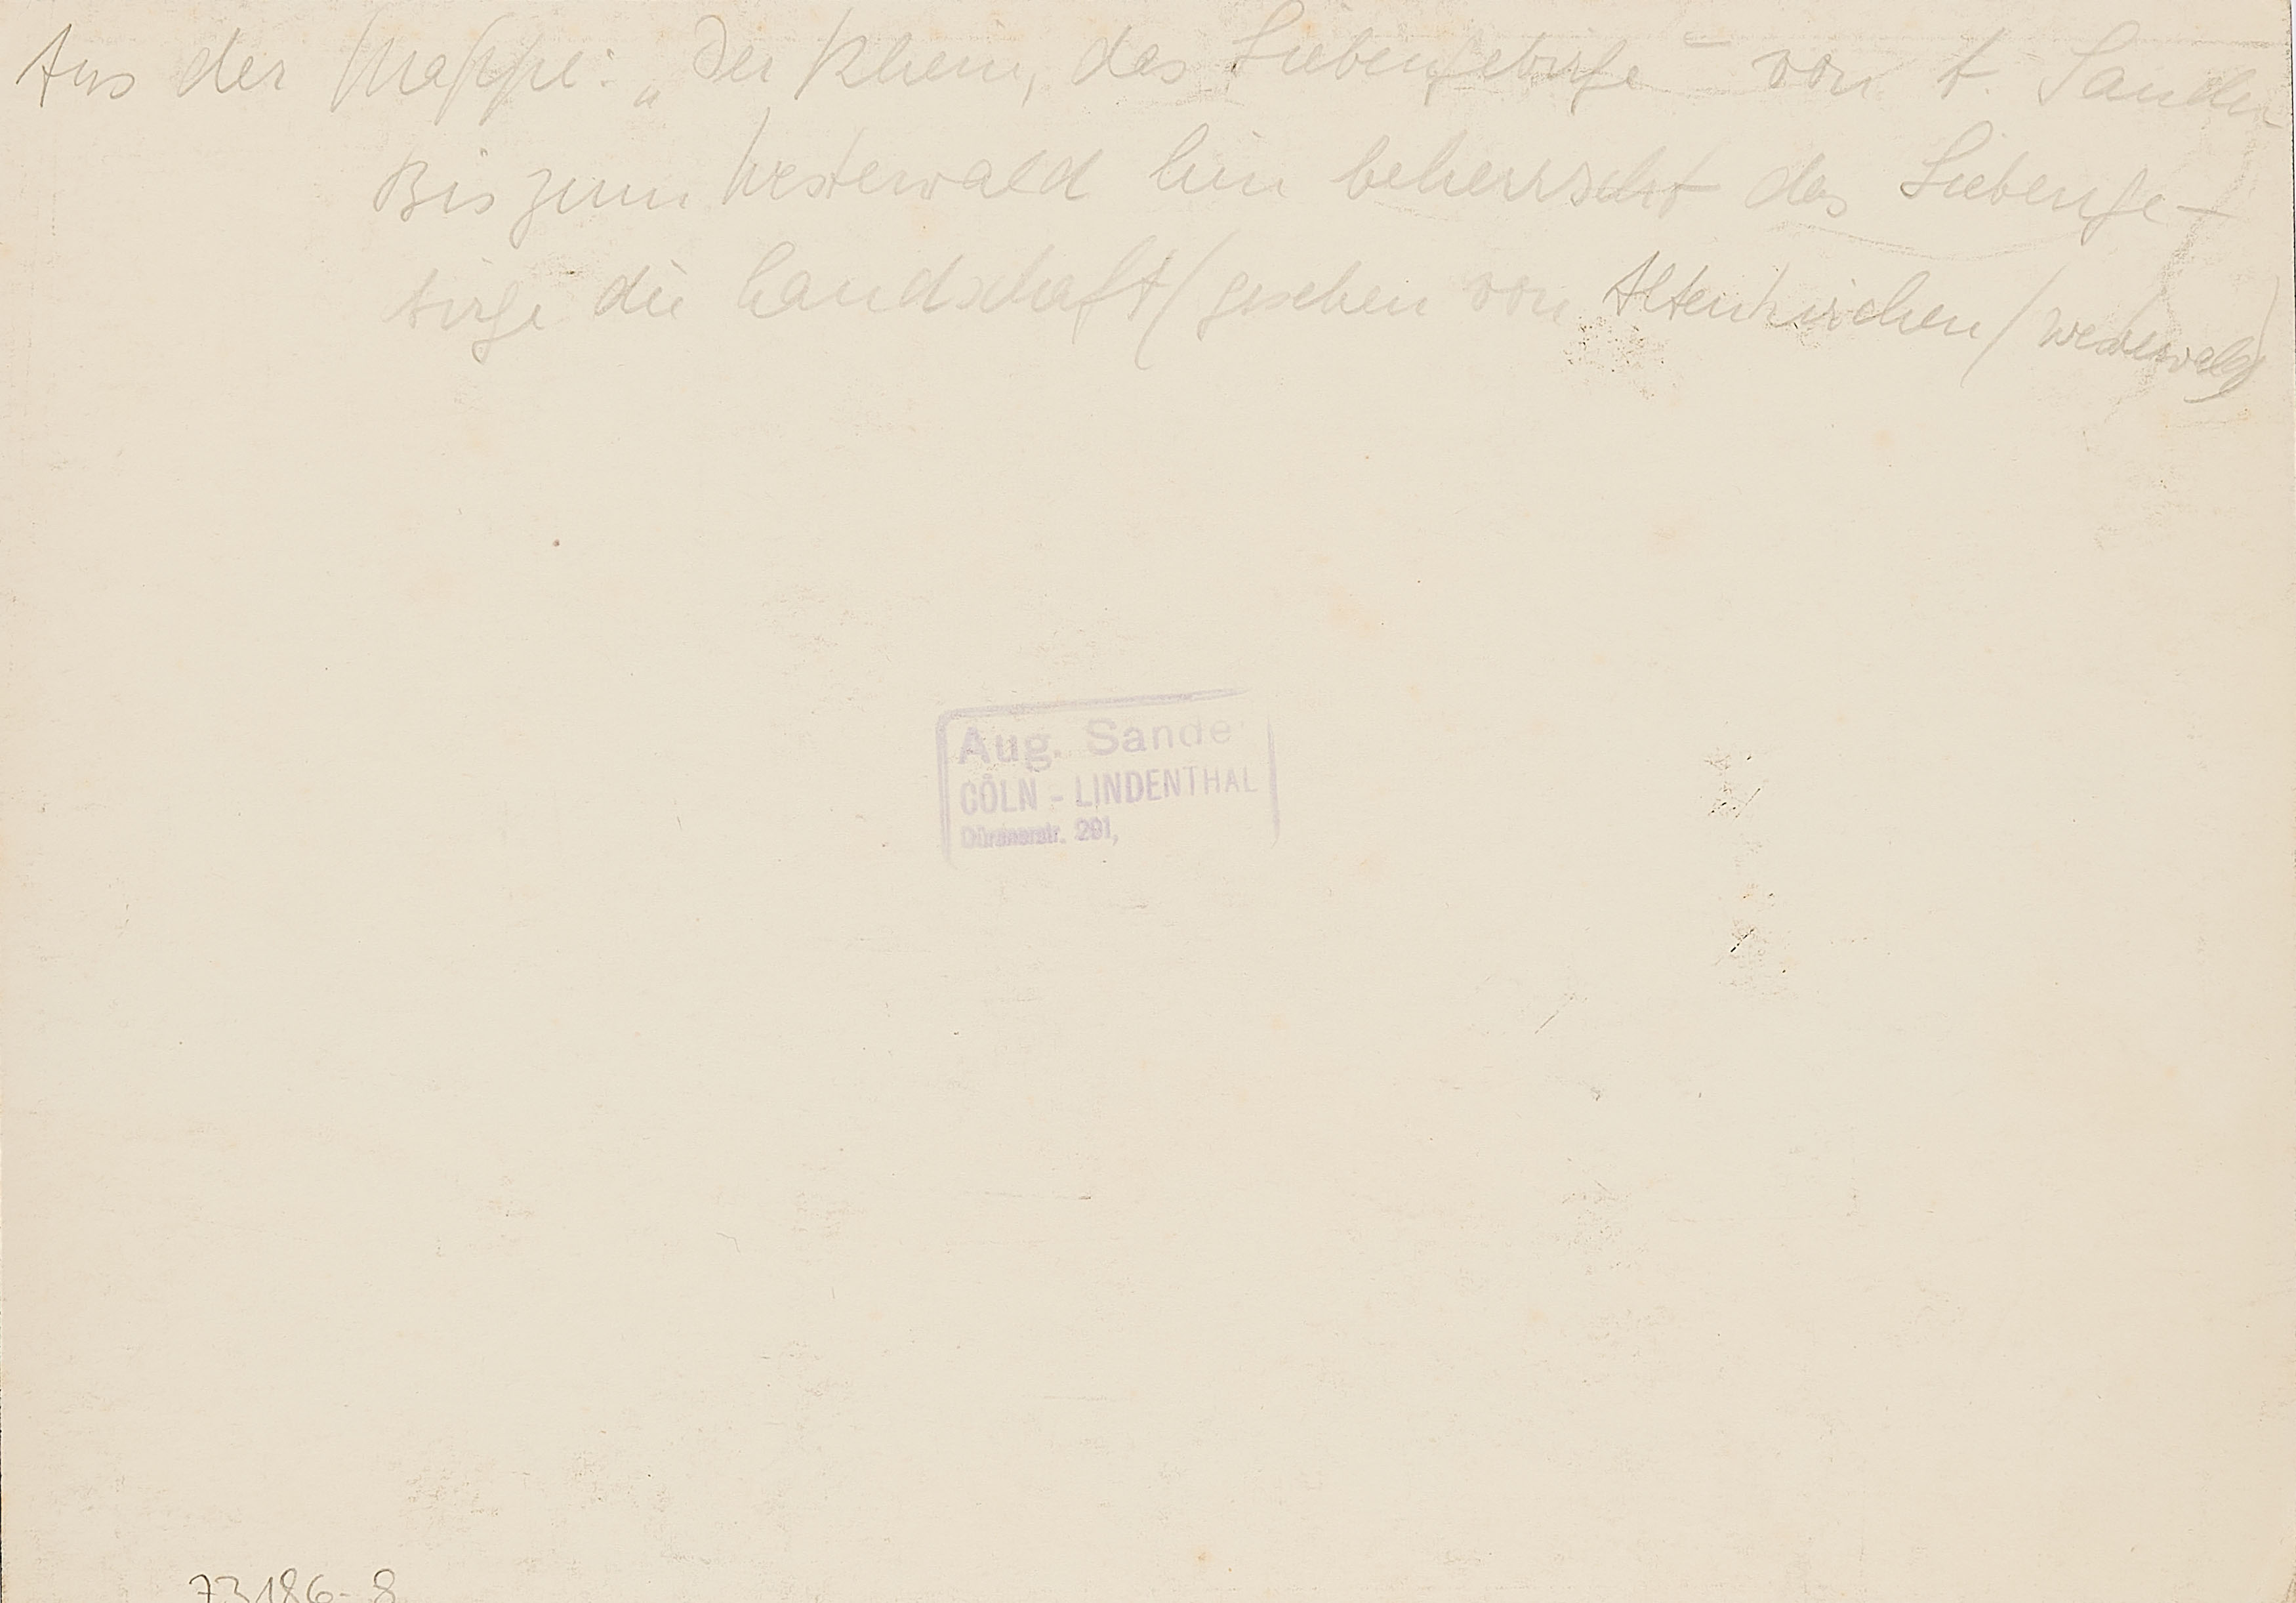 Aus der Mappe: „Der Rhein, das Siebengebirge" von A. Sander
Bis zum Westerwald hin beherrscht das Siebenge-
birge die Landschaft (gesehen von Altenkirchen / Westerwald)
Aug. Sande
CÖLN - LINDENTHAL
Dürenerstr. 201,
73186-8